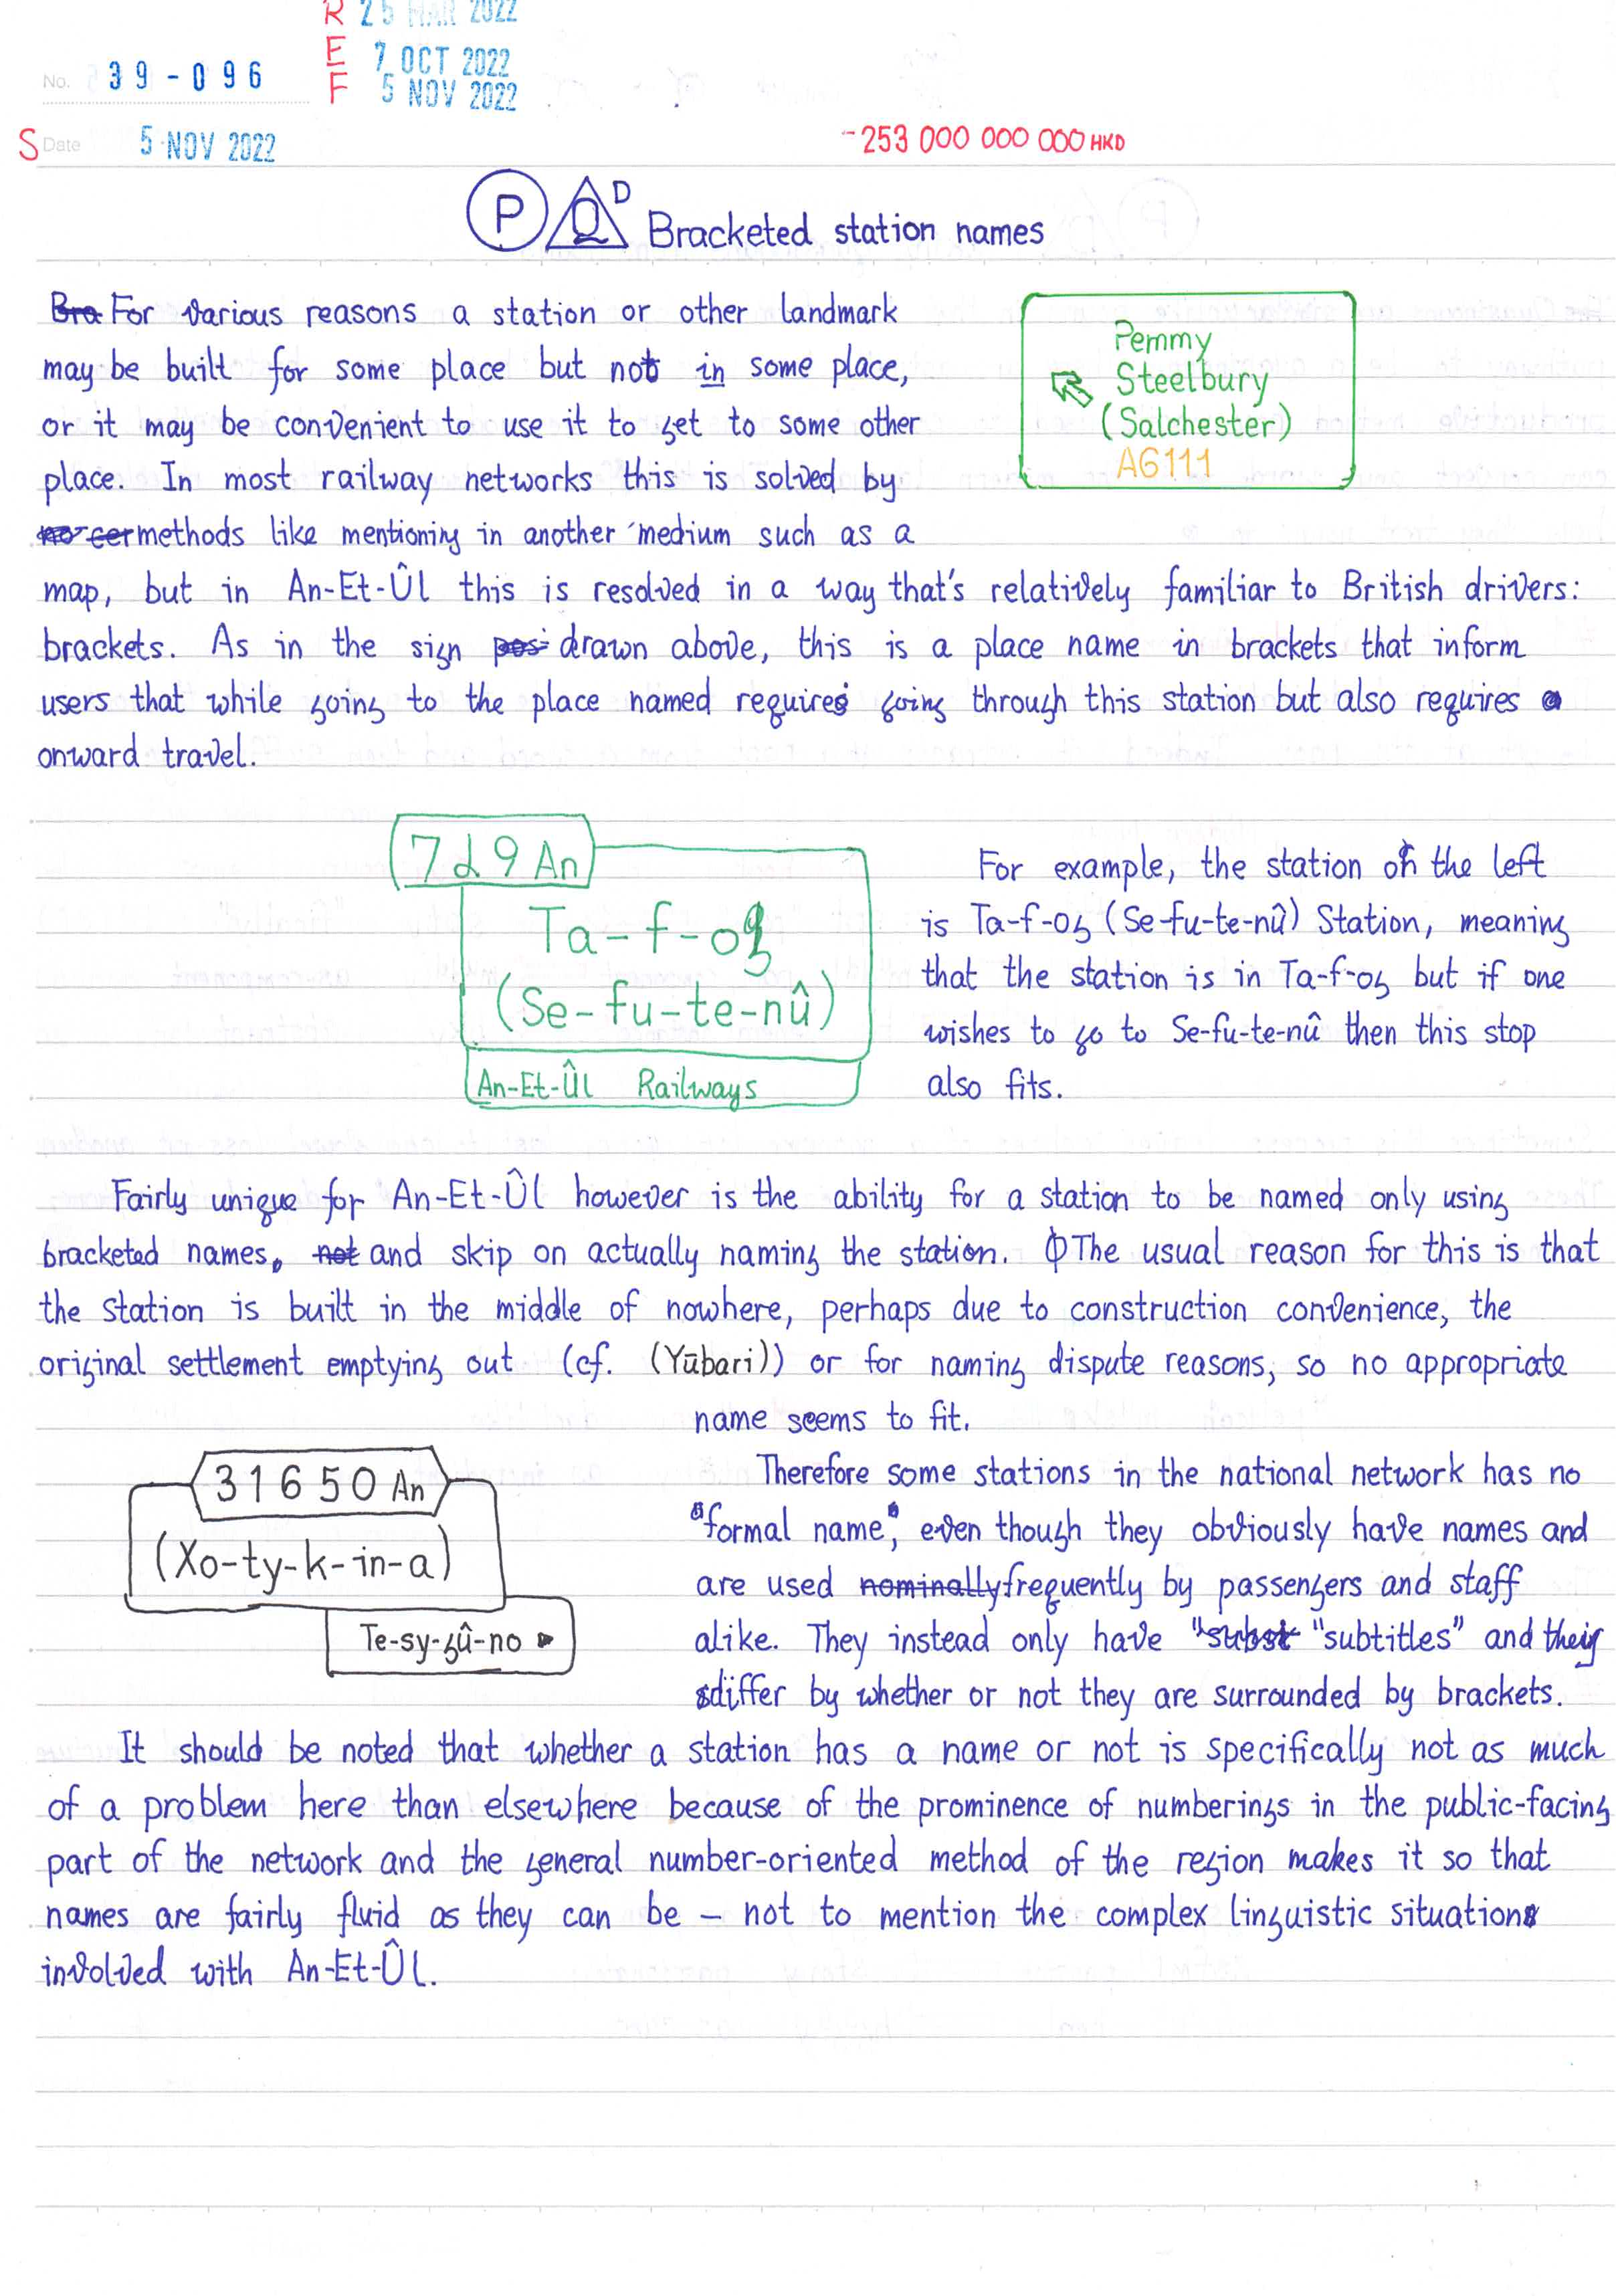 R 25 MAR 2022
E 7 OCT 2022
F 5 NOV 2022
No. 39-096
S Date 5 NOV 2022
-253 000 000 000 HKD
P Q D Bracketed station names
Bra For various reasons a station or other landmark
may be built for some place but not in some place,
or it may be convenient to use it to get to some other
place. In most railway networks this is solved by
no cer methods like mentioning in another medium such as a
Pemmy
Steelbury
(Salchester)
A6111
map, but in An-Et-Ûl this is resolved in a way that's relatively familiar to British drivers:
brackets. As in the sign pos drawn above, this is a place name in brackets that inform
users that while going to the place named requires going through this station but also requires
onward travel.
729 An
Ta-f-og
(Se-fu-te-nû)
An-Et-Ûl Railways
For example, the station on the left
is Ta-f-og (Se-fu-te-nû) Station, meaning
that the station is in Ta-f-og but if one
wishes to go to Se-fu-te-nû then this stop
also fits.
Fairly unique for An-Et-Ûl however is the ability for a station to be named only using
bracketed names, not and skip on actually naming the station. The usual reason for this is that
the station is built in the middle of nowhere, perhaps due to construction convenience, the
original settlement emptying out (cf. (Yūbari)) or for naming dispute reasons, so no appropriate
name seems to fit.
31650 An
(Xo-ty-k-in-a)
Te-sy-gû-no ▸
Therefore some stations in the national network has no
"formal name", even though they obviously have names and
are used nominally frequently by passengers and staff
alike. They instead only have "subst "subtitles" and they
differ by whether or not they are surrounded by brackets.
It should be noted that whether a station has a name or not is specifically not as much
of a problem here than elsewhere because of the prominence of numberings in the public-facing
part of the network and the general number-oriented method of the region makes it so that
names are fairly fluid as they can be – not to mention the complex linguistic situation
involved with An-Et-Ûl.